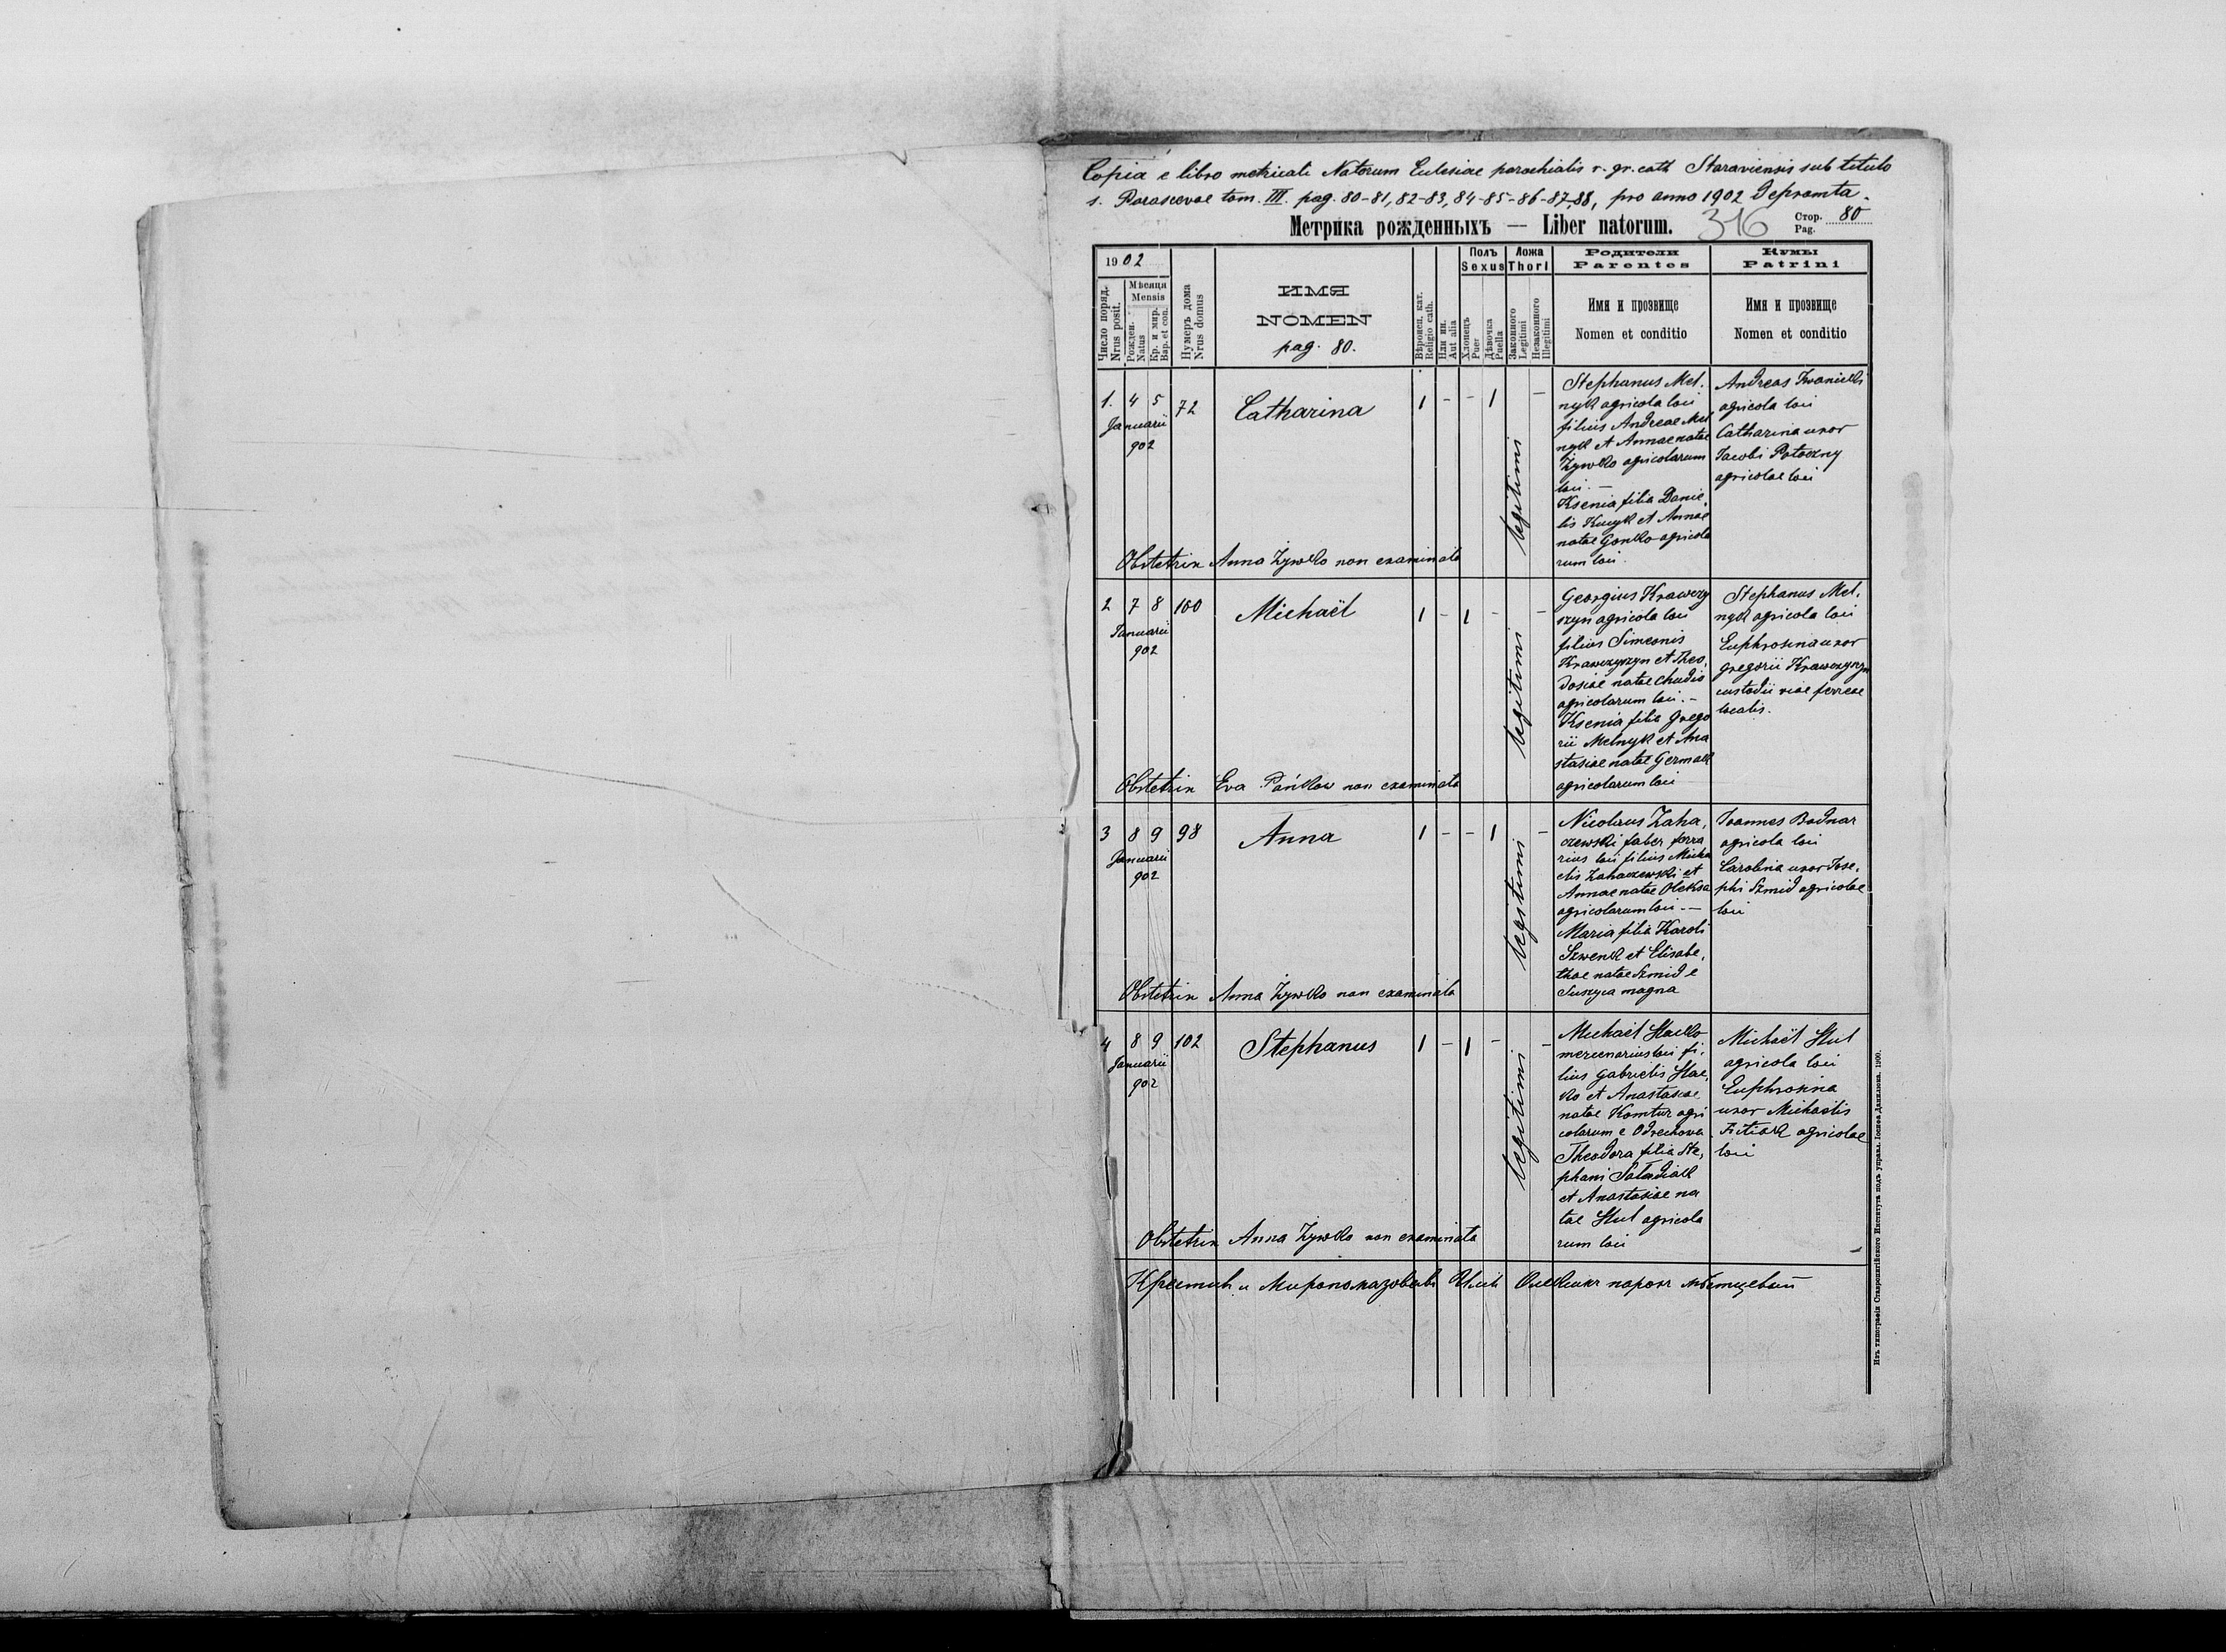 Copia e libro metricali Natorum Eclesiae parochialis r. gr. cath Staraviensis sub titulo
s. Parascevae tom. III. pag. 80-81, 82-83, 84-85-86-87,88, pro anno 1902 Depromta.
Метрика рожденныхъ — Liber natorum.
316
Стор. 80
Pag.
1902
Число поряд.
Nrus posit.
Мѣсяця
Mensis
Рожден.
Natus
Кр. и мир.
Bap. et con.
Нумеръ дома
Nrus domus
ИМЯ
NOMEN
pag. 80.
Вѣроисп. кат.
Religio cath.
Или ин.
Aut alia
Полъ
Sexus
Хлопець
Puer
Дѣвочка
Puella
Ложа
Thori
Законного
Legitimi
Незаконного
Illegitimi
Родители
Parentes
Имя и прозвище
Nomen et conditio
Кумы
Patrini
Имя и прозвище
Nomen et conditio
1. 4 5 72 Catharina 1 - - 1 -
Januarii
902
legitimi
Stephanus Mel.
nyk agricola loci
filius Andreae Mel
nyk et Annae natae
Żywko agricolarum
loci. —
Ksenia filia Danie,
lis Kucyk et Annae
natae Gonko agricola
rum loci.
Andreas Iwanicki
agricola loci
Catharina uxor
Jacobi Potoczny
agricolae loci
Obstetrix Anna Żywko non examinata
2 7 8 100 Michaël 1 - 1 - -
Januarii
902
legitimi
Georgius Krawczy
szyn agricola loci
filius Simeonis
Krawczyszyn et Theo,
dosiae natae Chudio
agricolarum loci. -
Ksenia filia Grego
rii Melnyk et Ana
stasiae natae Germak
agricolarum loci
Stephanus Mel,
nyk agricola loci
Euphrosina uxor
Gregorii Krawczyszyn
custodii viae ferreae
localis.
Obstetrix Eva Pańkow non examinata
3 8 9 98 Anna 1 - - 1 -
Januarii
902
legitimi
Nicolaus Zaha,
czewski faber ferra
rius loci filius Micha
elis Zahaczewski et
Annae natae Oleksa
agricolarum loci. —
Maria filia Karoli
Szwenk et Elisabe,
thae natae Szmid e
Suszyca magna
Joannes Bodnar
agricola loci
Carolina uxor Jose,
phi Szmid agricolae
loci
Obstetrix Anna Żywko non examinata
4 8 9 102 Stephanus 1 - 1 - -
Januarii
902
legitimi
Michaël Hacko
mercenarius loci fi,
lius Gabrielis Hac,
ko et Anastasiae
natae Komtur agri
colarum e Odrechowa
Theodora filia Ste,
phani
et Anastasiae na
tae Hul agricola
rum loci
Michaël Hul
agricola loci
Euphrosina
uxor Michaëlis
agricolae
loci
Obstetrix Anna Żywko non examinata
Крестивъ и Миропомазовавъ парохъ мѣстцевый
Изъ типографіи Ставропигійского Института подъ управл. Іосифа Данилюка. 1900.